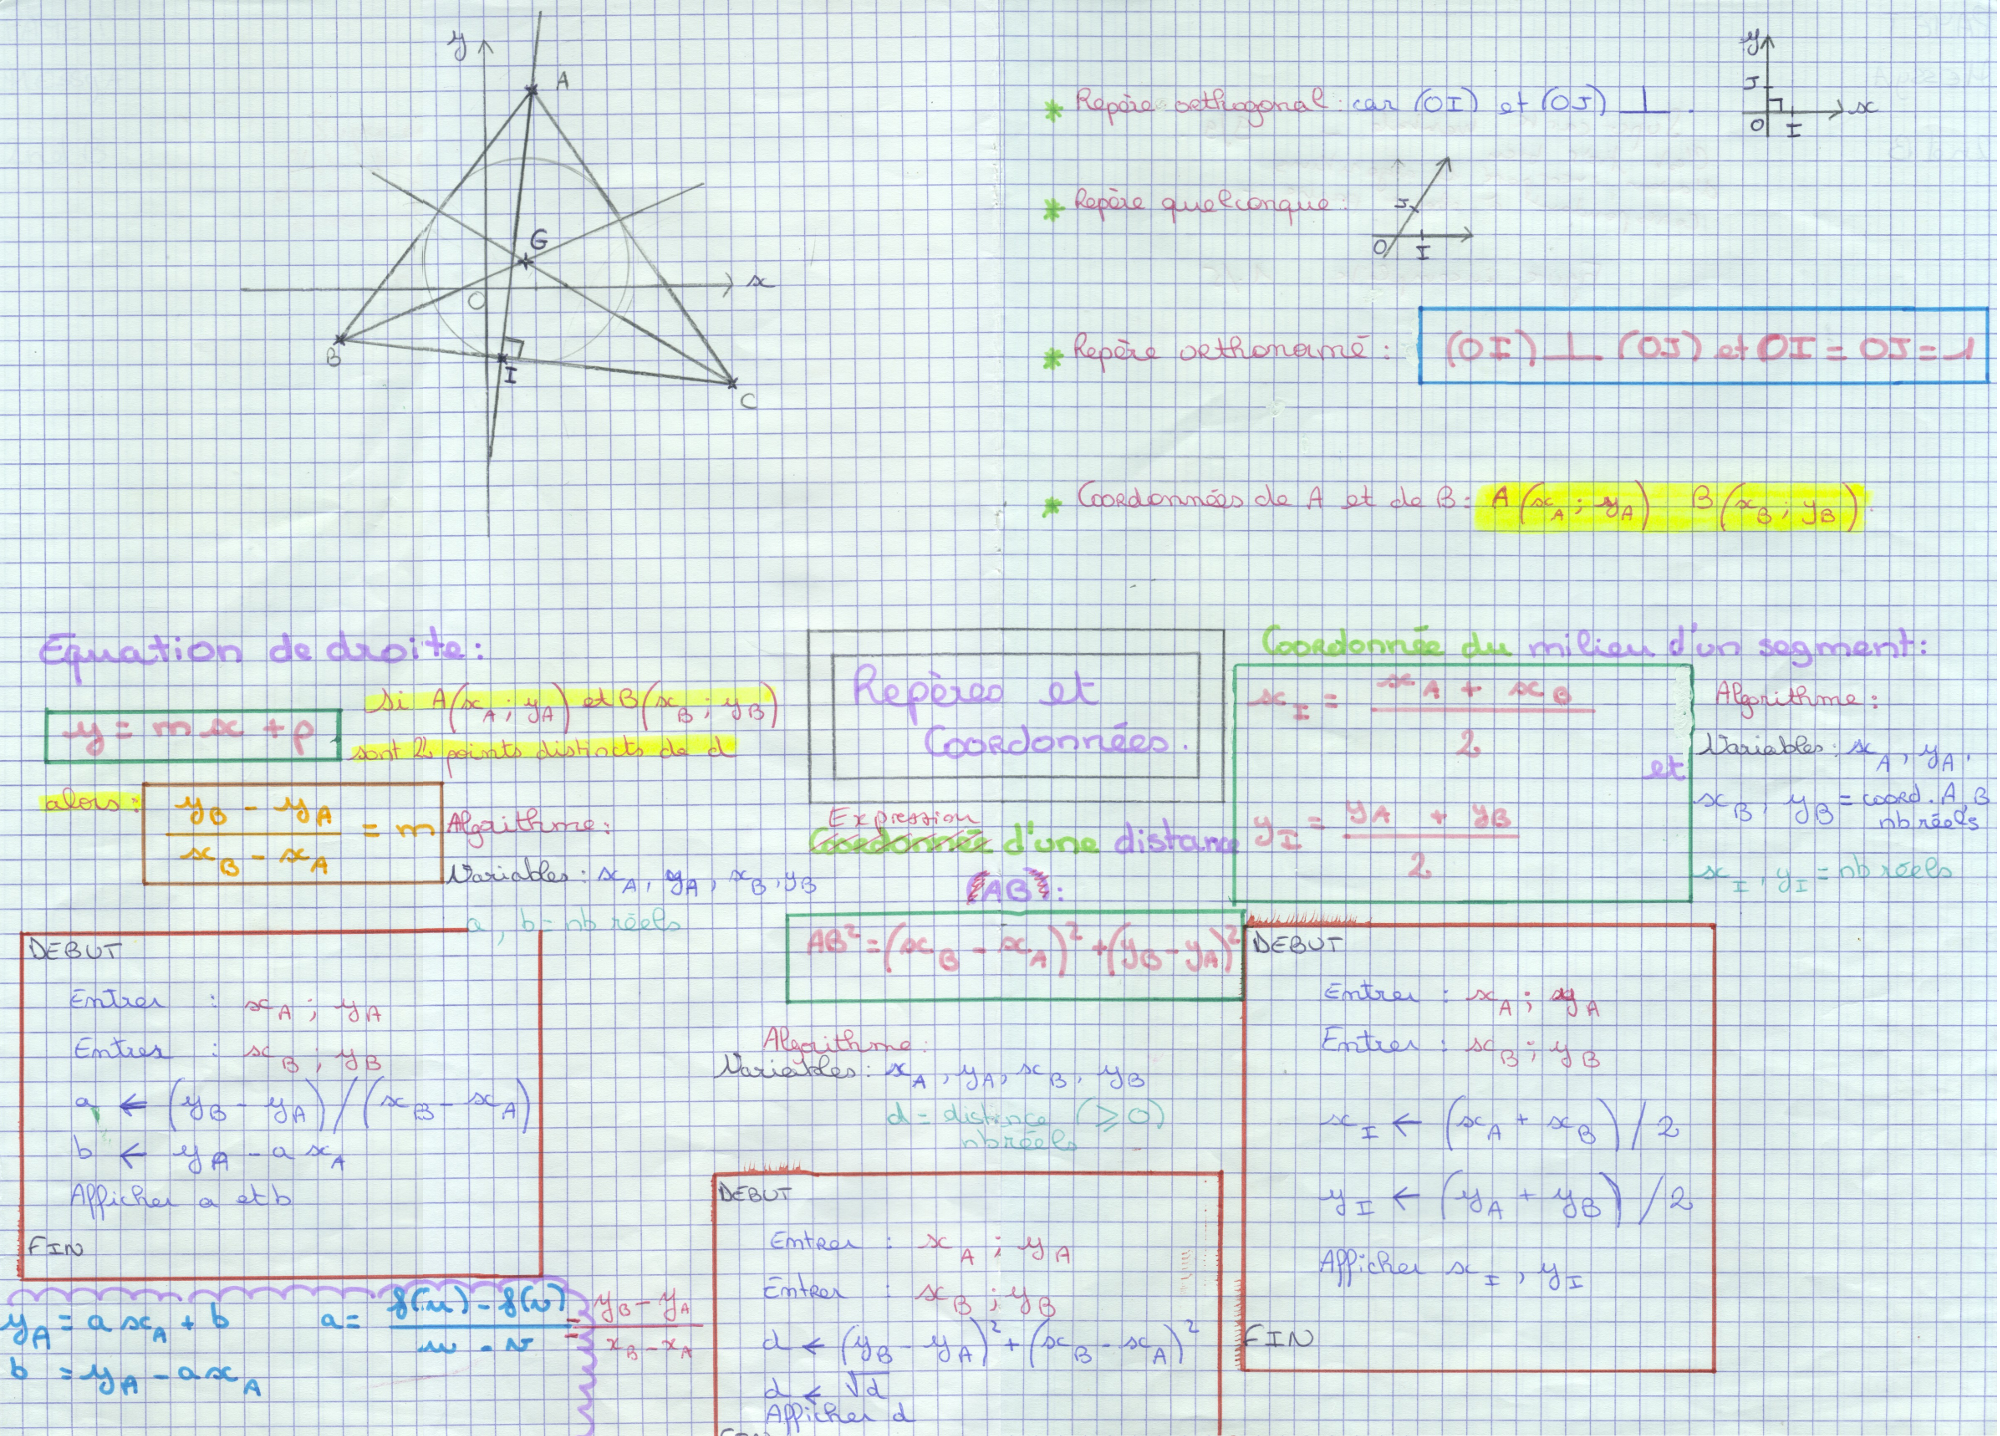 y
A
G
x
O
B
I
C
* Repère orthogonal : car (OI) et (OJ) ⊥.
y
J
O
I
x
* Repère quelconque :
J
O
I
* Repère orthonormé : (OI) ⊥ (OJ) et OI = OJ = 1
* Coordonnées de A et de B : A(x_A ; y_A) B(x_B ; y_B).
Repères et
Coordonnées.
Equation de droite :
y = mx + p
Si A(x_A ; y_A) et B(x_B ; y_B)
sont 2 points distincts de d
alors : (y_B - y_A)/(x_B - x_A) = m
Algorithme :
Variables : x_A, y_A, x_B, y_B
a, b = nb réels
DEBUT
Entrer : x_A ; y_A
Entrer : x_B ; y_B
a ← (y_B - y_A)/(x_B - x_A)
b ← y_A - a x_A
Afficher a et b
FIN
y_A = a x_A + b
a = (f(u) - f(v))/(u - v) = (y_B - y_A)/(x_B - x_A)
b = y_A - a x_A
Expression
Coordonnée d'une distance
(AB) :
AB² = (x_B - x_A)² + (y_B - y_A)²
Algorithme :
Variables : x_A, y_A, x_B, y_B
d = distance (≥ 0)
nb réels
DEBUT
Entrer : x_A ; y_A
Entrer : x_B ; y_B
d ← (y_B - y_A)² + (x_B - x_A)²
d ← √d
Afficher d
FIN
Coordonnée du milieu d'un segment :
x_I = (x_A + x_B)/2
et
y_I = (y_A + y_B)/2
Algorithme :
Variables : x_A, y_A,
x_B, y_B = coord. A, B
nb réels
x_I, y_I = nb réels
DEBUT
Entrer : x_A ; y_A
Entrer : x_B ; y_B
x_I ← (x_A + x_B)/2
y_I ← (y_A + y_B)/2
Afficher x_I, y_I
FIN